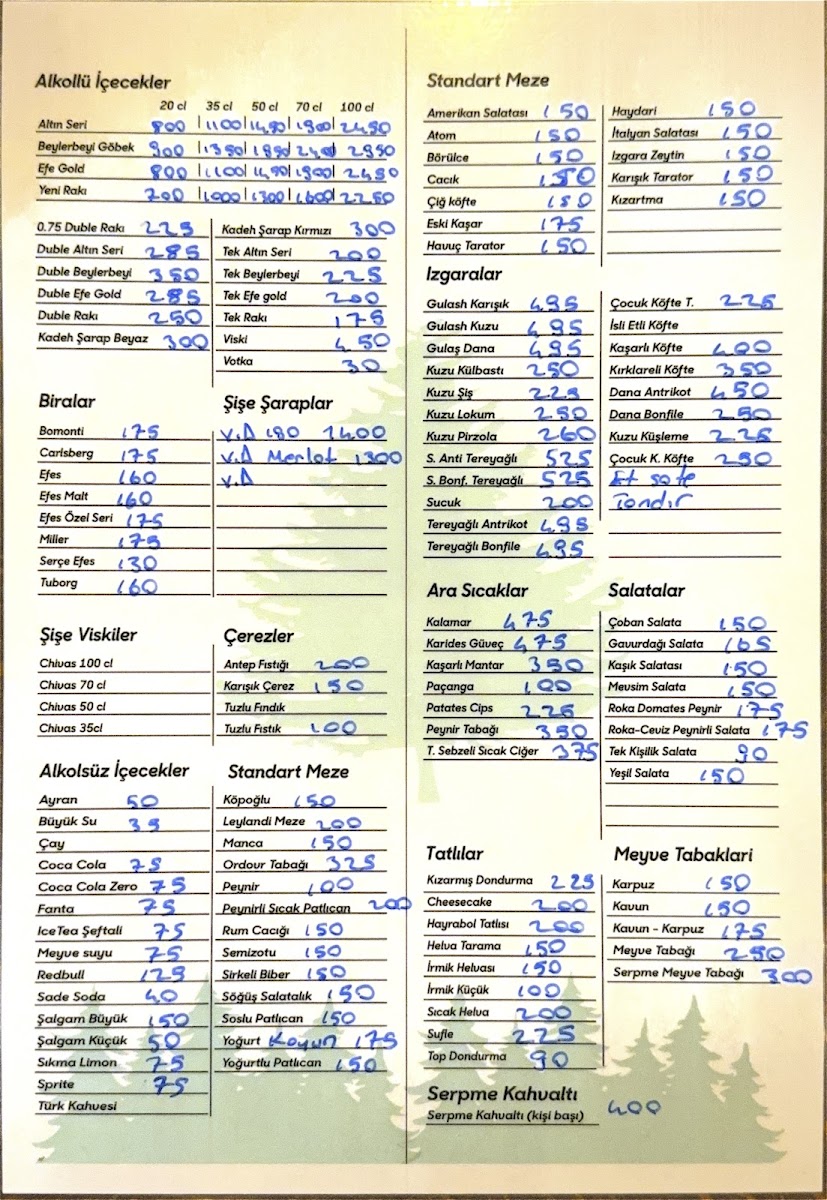 Alkollü İçecekler
20 cl 35 cl 50 cl 70 cl 100 cl
Altın Seri 800 1100 1450 1900 2450
Beylerbeyi Göbek 900 1350 1850 2400 2950
Efe Gold 800 1100 1450 1900 2450
Yeni Rakı 700 1000 1300 1600 2250
0.75 Duble Rakı 225
Duble Altın Seri 285
Duble Beylerbeyi 350
Duble Efe Gold 285
Duble Rakı 250
Kadeh Şarap Beyaz 300
Kadeh Şarap Kırmızı 300
Tek Altın Seri 200
Tek Beylerbeyi 225
Tek Efe gold 200
Tek Rakı 175
Viski 450
Votka 30
Biralar
Bomonti 175
Carlsberg 175
Efes 160
Efes Malt 160
Efes Özel Seri 175
Miller 175
Serçe Efes 130
Tuborg 160
Şişe Şaraplar
V.A 180 1400
V.A Merlot 1300
V.A
Şişe Viskiler
Chivas 100 cl
Chivas 70 cl
Chivas 50 cl
Chivas 35cl
Çerezler
Antep Fıstığı 200
Karışık Çerez 150
Tuzlu Fındık
Tuzlu Fıstık 100
Alkolsüz İçecekler
Ayran 50
Büyük Su 35
Çay
Coca Cola 75
Coca Cola Zero 75
Fanta 75
IceTea Şeftali 75
Meyve suyu 75
Redbull 125
Sade Soda 40
Şalgam Büyük 150
Şalgam Küçük 50
Sıkma Limon 75
Sprite 75
Türk Kahvesi
Standart Meze
Köpoğlu 150
Leylandi Meze 200
Manca 150
Ordövr Tabağı 325
Peynir 100
Peynirli Sıcak Patlıcan 200
Rum Cacığı 150
Semizotu 150
Sirkeli Biber 150
Söğüş Salatalık 150
Soslu Patlıcan 150
Yoğurt Koyun 175
Yoğurtlu Patlıcan 150
Standart Meze
Amerikan Salatası 150
Atom 150
Börülce 150
Cacık 150
Çiğ köfte 150
Eski Kaşar 175
Havuç Tarator 150
Haydari 150
İtalyan Salatası 150
Izgara Zeytin 150
Karışık Tarator 150
Kızartma 150
Izgaralar
Gulash Karışık 495
Gulash Kuzu 495
Gulaş Dana 495
Kuzu Külbastı 250
Kuzu Şiş 225
Kuzu Lokum 250
Kuzu Pirzola 260
S. Anti Tereyağlı 525
S. Bonf. Tereyağlı 525
Sucuk 200
Tereyağlı Antrikot 495
Tereyağlı Bonfile 495
Çocuk Köfte T. 225
İsli Etli Köfte
Kaşarlı Köfte 400
Kırklareli Köfte 350
Dana Antrikot 450
Dana Bonfile 250
Kuzu Küşleme 225
Çocuk K. Köfte 250
Et sote
Tandır
Ara Sıcaklar
Kalamar 475
Karides Güveç 475
Kaşarlı Mantar 350
Paçanga 100
Patates Cips 225
Peynir Tabağı 350
T. Sebzeli Sıcak Ciğer 375
Salatalar
Çoban Salata 150
Gavurdağı Salata 165
Kaşık Salatası 150
Mevsim Salata 150
Roka Domates Peynir 175
Roka-Ceviz Peynirli Salata 175
Tek Kişilik Salata 90
Yeşil Salata 150
Tatlılar
Kızarmış Dondurma 225
Cheesecake 200
Hayrabol Tatlısı 200
Helva Tarama 150
İrmik Helvası 150
İrmik Küçük 100
Sıcak Helva 200
Sufle 225
Top Dondurma 90
Meyve Tabaklari
Karpuz 150
Kavun 150
Kavun - Karpuz 175
Meyve Tabağı 250
Serpme Meyve Tabağı 300
Serpme Kahvaltı
Serpme Kahvaltı (kişi başı) 400